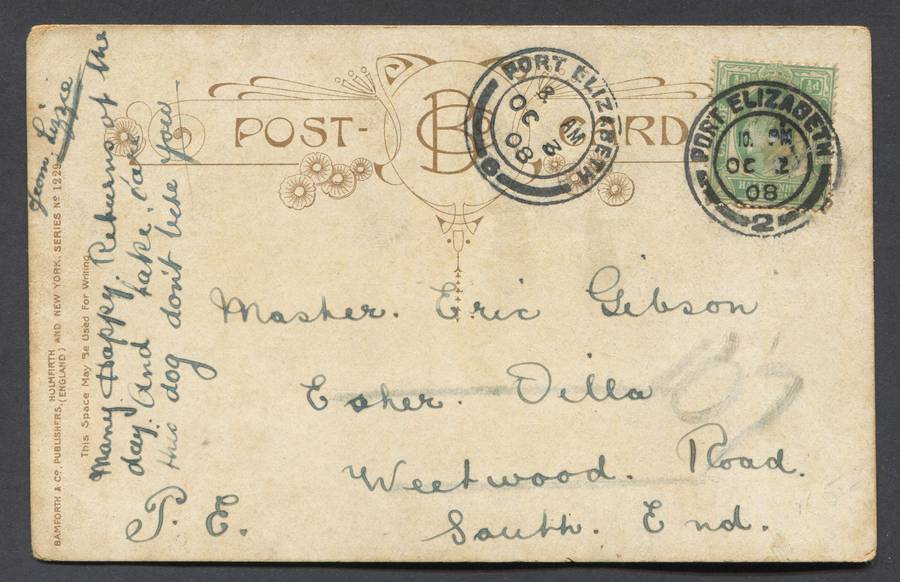 POST-CARD
PORT ELIZABETH
8
AM
OC 3
08
PORT ELIZABETH
PM
OC 2
08
2
from Lizzie
Many Happy Returns of the
day. And take care
this dog don't bite you
Master. Eric Gibson
Esher. Villa
Westwood. Road.
South. End.
P. E.
This Space May Be Used For Writing.
BAMFORTH & Co. PUBLISHERS, HOLMFIRTH (ENGLAND) AND NEW YORK. SERIES No 1229